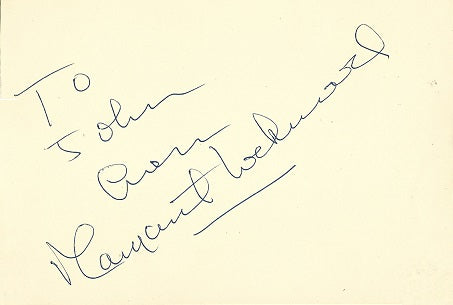 To
John
from
Margaret Lockwood